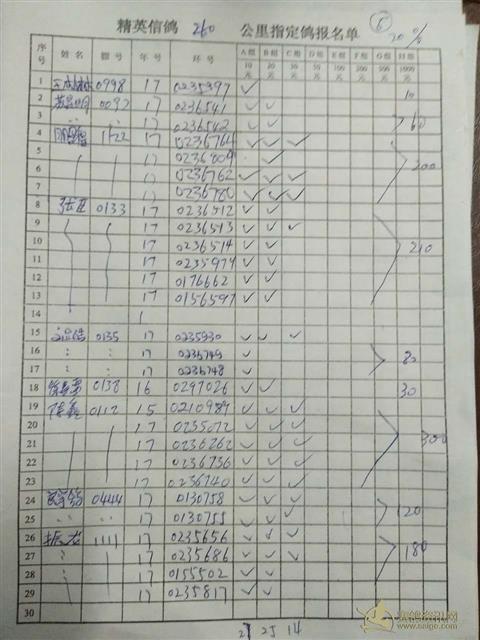 精英信鸽 260 公里指定鸽报名单 6
20%
序号 姓名 棚号 年号 环号 A组 B组 C组 D组 E组 F组 G组 H组
10元 20元 30元 50元 100元 200元 500元 1000元
1 0998 17 0235397 ✓ 10
2 0092 17 0236541 ✓ ✓
3 17 0236542 ✓ ✓ 60
4 1122 17 0236764 ✓ ✓ ✓
5 17 0236804 ✓ 200
6 17 0236762 ✓ ✓ ✓
7 17 0236780 ✓ ✓ ✓
8 0133 17 0236512 ✓ ✓
9 17 0236513 ✓ ✓ ✓
10 17 0236514 ✓ ✓ 210
11 17 0235974 ✓ ✓
12 17 0176662 ✓ ✓
13 17 0156597 ✓ ✓
14
15 0135 17 0235930 ✓ ✓ ✓
16 17 0236749 ✓ 80
17 17 0236748 ✓
18 0138 16 0297026 ✓ ✓ 30
19 0112 15 0210989 ✓ ✓ ✓
20 17 0235072 ✓ ✓ ✓
21 17 0236262 ✓ ✓ ✓ 300
22 17 0236736 ✓ ✓ ✓
23 17 0236740 ✓ ✓ ✓
24 0444 17 0130758 ✓ ✓ ✓
25 17 0130755 ✓ ✓ ✓ 120
26 1111 17 0235656 ✓ ✓ ✓
27 17 0235686 ✓ ✓ ✓ 180
28 17 0155502 ✓ ✓
29 17 0235817 ✓ ✓
30
25 14
赛鸽资讯网
www.saige.com